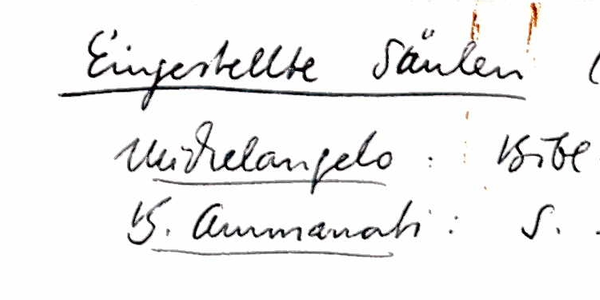 Eingestellte Säulen (
Michelangelo : Bibl
B. Ammanati : S.